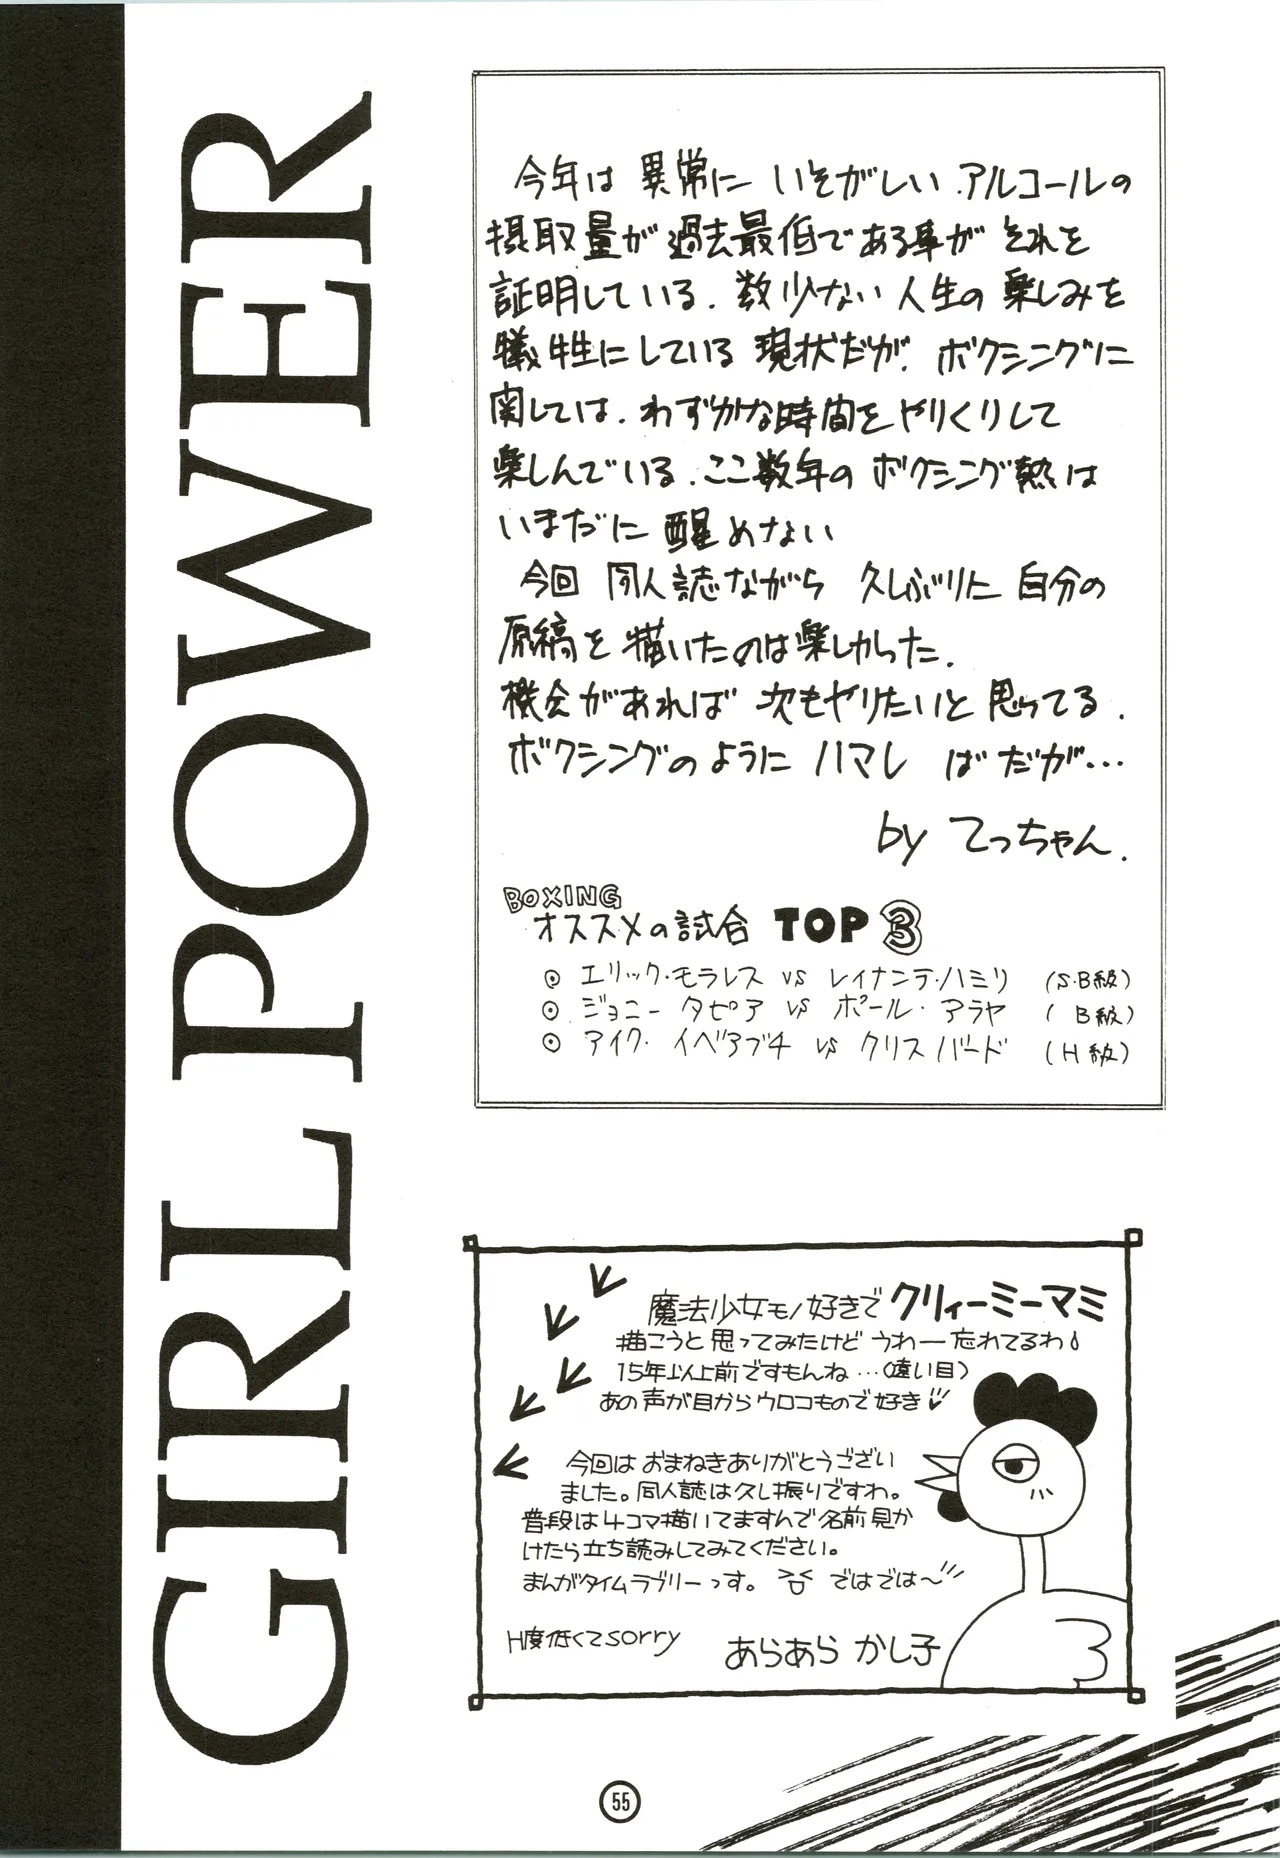 GIRL POWER
今年は 異常に いそがしい.アルコールの
摂取量が過去最低である事が それを
証明している.数少ない人生の楽しみを
犠牲にしている現状だが.ボクシングに
関しては.わずかな時間をやりくりして
楽しんでいる.ここ数年のボクシング熱は
いまだに 醒めない
今回 同人誌ながら 久しぶりに 自分の
原稿を 描いたのは楽しかった.
機会があれば 次もやりたいと 思ってる.
ボクシングのように ハマレ ばだが…
by てっちゃん.
BOXING
オススメの試合 TOP 3
◉ エリック・モラレス vs レイナンテ・ハミリ (S・B級)
◉ ジョニー タピア vs ポール・アラヤ (B級)
◉ アイク・イベアブチ vs クリス バード (H級)
魔法少女モノ好きで クリィーミーマミ
描こうと思ってみたけど うわー忘れてるわ
15年以上前ですもんね…(遠い目)
あの声が目からウロコもので好き
今回は おまねきありがとうござい
ました。同人誌は久し振りですわ。
普段は4コマ描いてますんで名前見か
けたら立ち読みしてみてください。
まんがタイムラブリーっす。 ではでは〜
H度低くてsorry
あらあら かし子
55